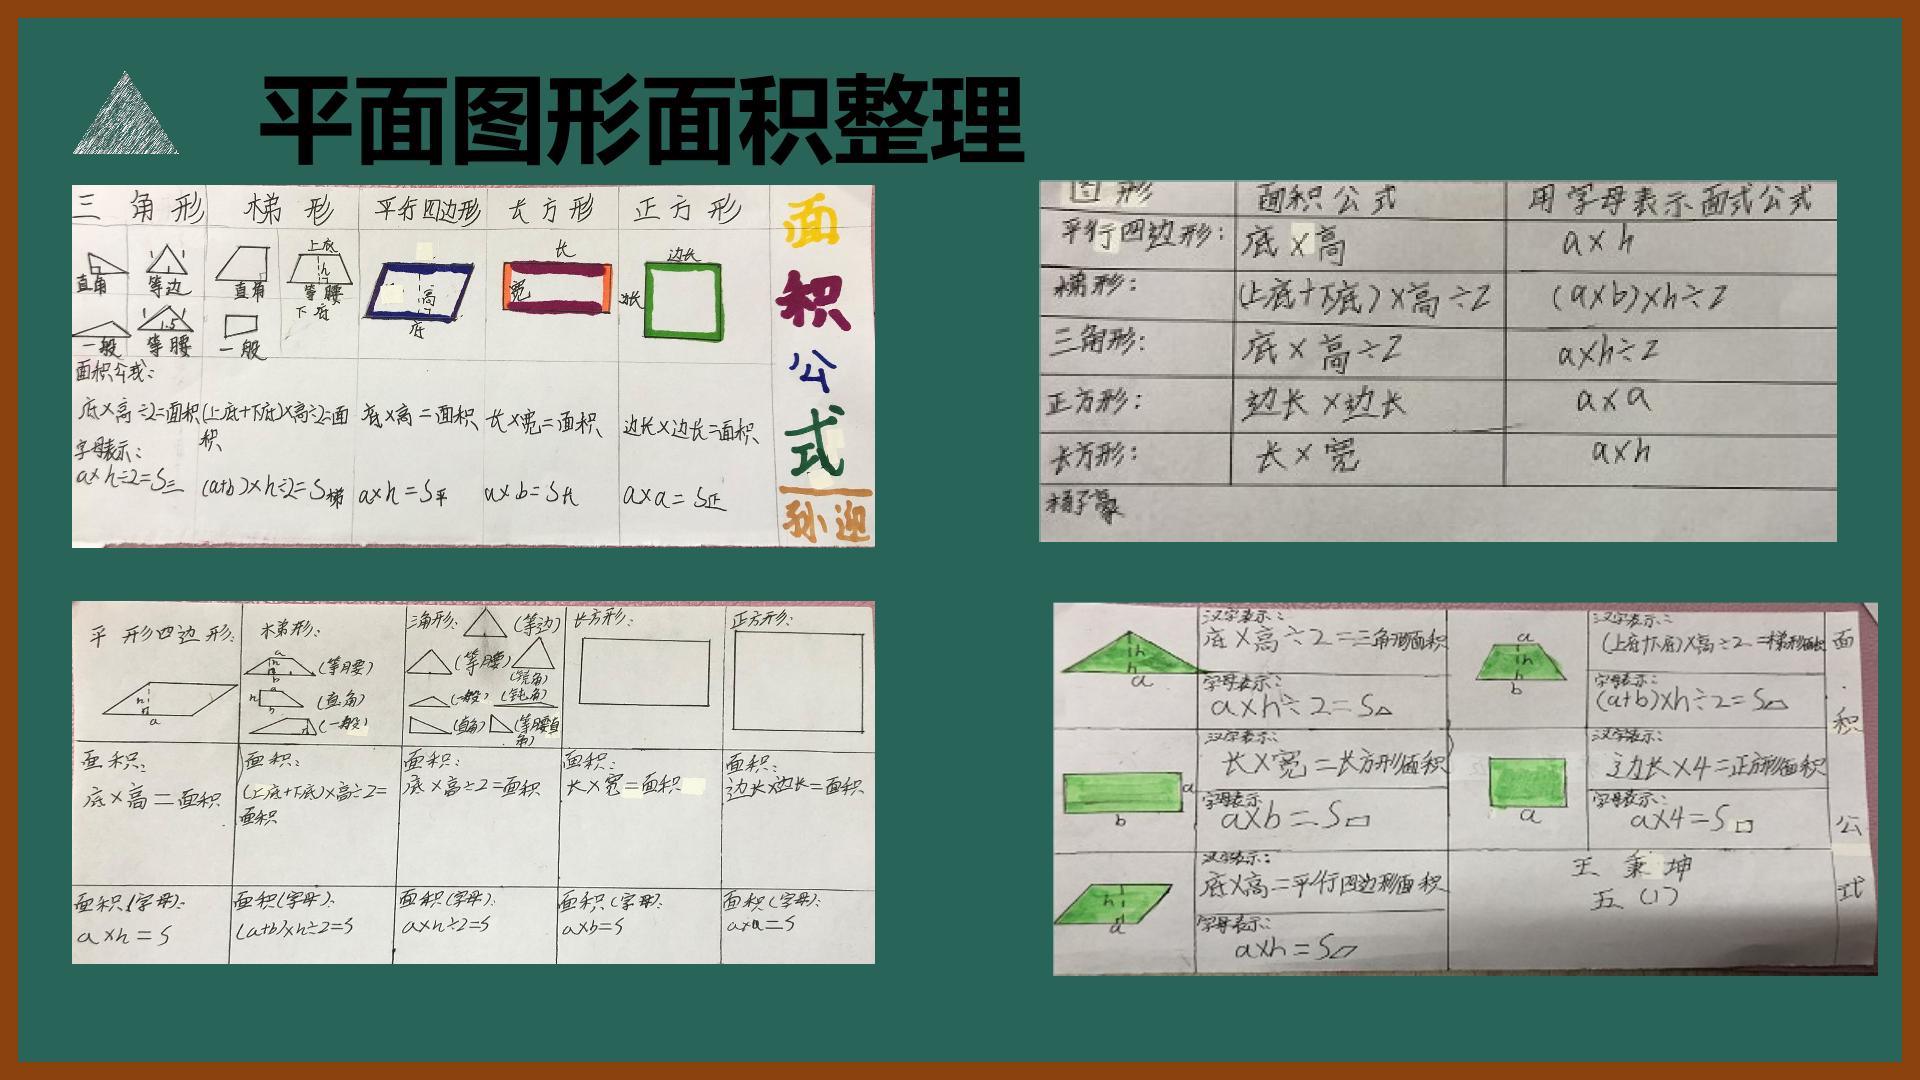 平面图形面积整理
三角形 梯形 平行四边形 长方形 正方形
直角 等边 直角 等腰
上底
h
下底
一般 等腰 一般
高
底
长
宽
边长
边长
面积公式:
底×高÷2=面积 (上底+下底)×高÷2=面积 底×高=面积 长×宽=面积 边长×边长=面积
字母表示:
a×h÷2=S三 (a+b)×h÷2=S梯 a×h=S平 a×b=S长 a×a=S正
面
积
公
式
孙迎
图形 面积公式 用字母表示面式公式
平行四边形: 底×高 a×h
梯形: (上底+下底)×高÷2 (a×b)×h÷2
三角形: 底×高÷2 a×h÷2
正方形: 边长×边长 a×a
长方形: 长×宽 a×h
平形四边形: 梯形: 三角形: 长方形: 正方形:
h
a
a
h
b
(等腰)
h
b
(直角)
(一般)
(等边)
(等腰)
(锐角)
(一般) (钝角)
(直角) (等腰直角)
面积: 面积: 面积: 面积: 面积:
底×高=面积 (上底+下底)×高÷2=面积 底×高÷2=面积 长×宽=面积 边长×边长=面积
面积(字母): 面积(字母): 面积(字母): 面积(字母): 面积(字母):
a×h=S (a+b)×h÷2=S a×h÷2=S a×b=S a×a=S
h
h
a
汉字表示:
底×高÷2=三角形面积
字母表示:
a×h÷2=S△
a
h
b
汉字表示:
(上底+下底)×高÷2=梯形面积
字母表示:
(a+b)×h÷2=S
a
b
汉字表示:
长×宽=长方形面积
字母表示
a×b=S□
a
汉字表示:
边长×4=正方形面积
字母表示:
a×4=S□
h
a
汉字表示:
底×高=平行四边形面积
字母表示:
a×h=S▱
王秉坤
五(1)
面
积
公
式